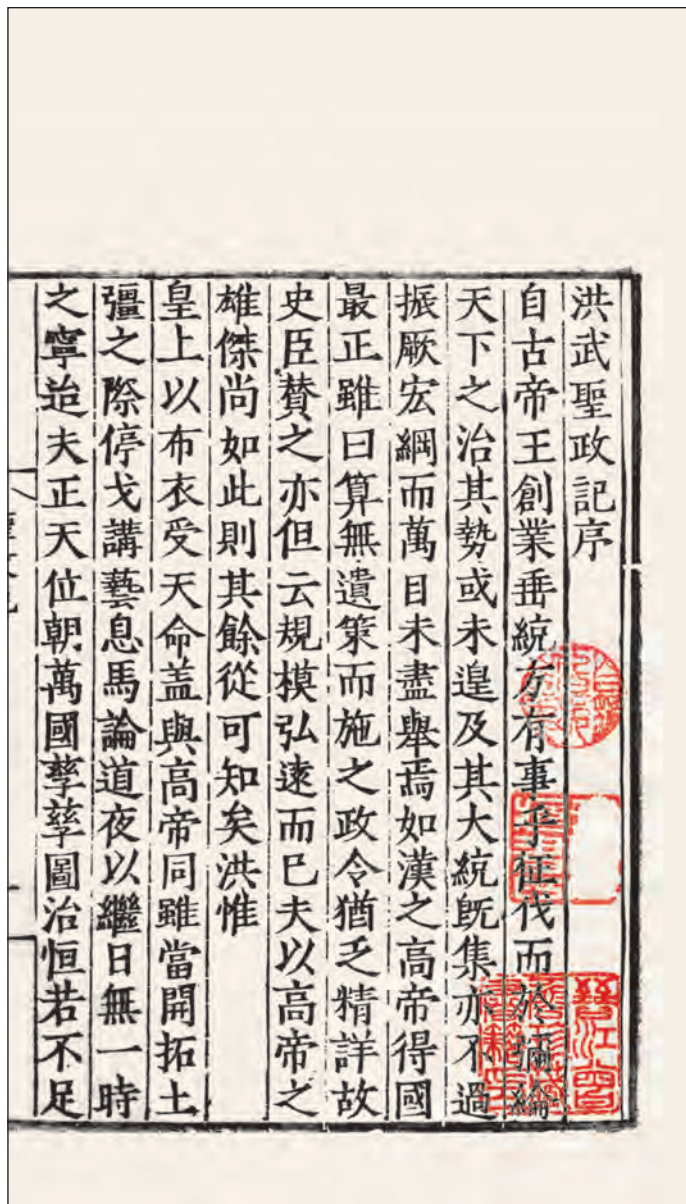 洪武聖政記序
自古帝王創業垂統方有事乎征伐而於彌綸
天下之治其勢或未遑及其大統旣集亦不過
振厥宏綱而萬目未盡舉焉如漢之高帝得國
最正雖曰算無遺策而施之政令猶乏精詳故
史臣贊之亦但云規模弘遠而已夫以高帝之
雄傑尚如此則其餘從可知矣洪惟
皇上以布衣受天命盖與高帝同雖當開拓土
彊之際停戈講藝息馬論道夜以繼日無一時
之寧迨夫正天位朝萬國孳孳圖治恒若不足